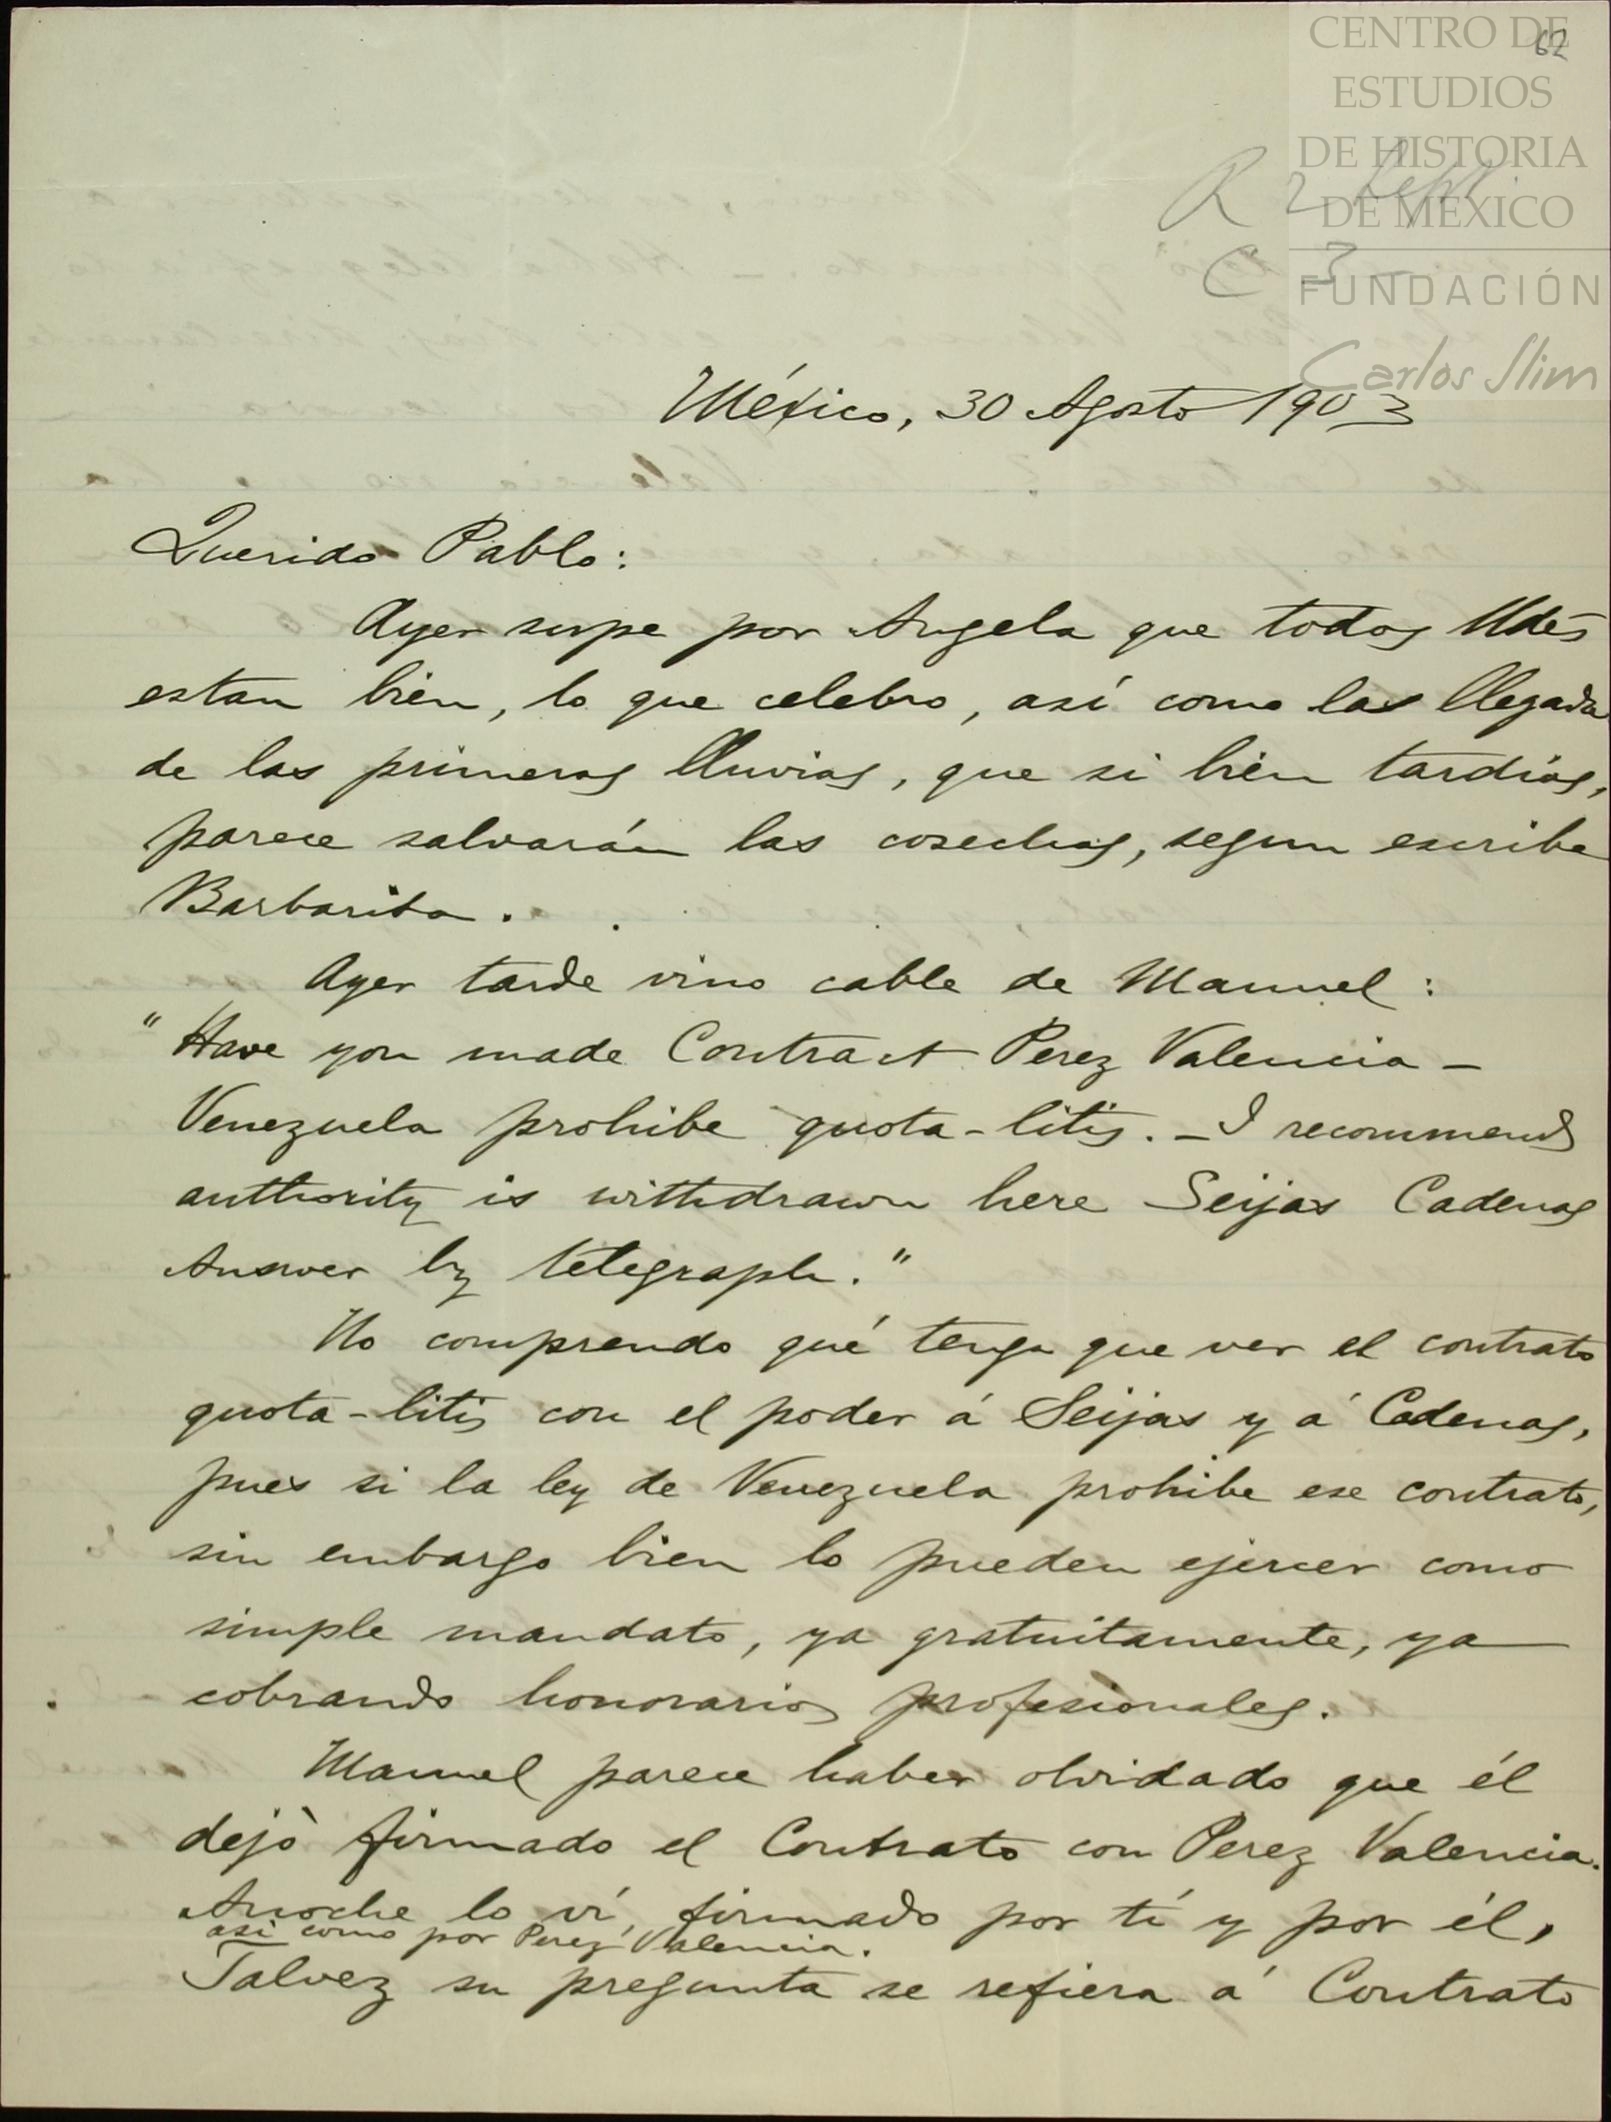 CENTRO DE
62
ESTUDIOS
DE HISTORIA
DE MÉXICO
R 2 Sept
C 3 -
FUNDACIÓN
Carlos Slim
México, 30 Agosto 1903
Querido Pablo:
Ayer supe por Angela que todos Udes
estan bien, lo que celebro, así como las llegada
de las primeras lluvias, que si bien tardías,
parece salvarán las cosechas, segun escribe
Barbarita.
Ayer tarde vino cable de Manuel:
"Have you made Contract Perez Valencia -
Venezuela prohibe quota-litis. - I recommend
authority is withdrawn here Seijas Cadenas
Answer by telegraph."
No comprendo qué tenga que ver el contrato
quota-litis con el poder á Seijas y á Cadenas,
pues si la ley de Venezuela prohibe ese contrato,
sin embargo bien lo pueden ejercer como
simple mandato, ya gratuitamente, ya
cobrando honorarios profesionales.
Manuel parece haber olvidado que él
dejò firmado el Contrato con Perez Valencia.
Anoche lo ví, firmado por tí y por él,
así como por Perez Valencia.
Talvez su pregunta se refiera á Contrato